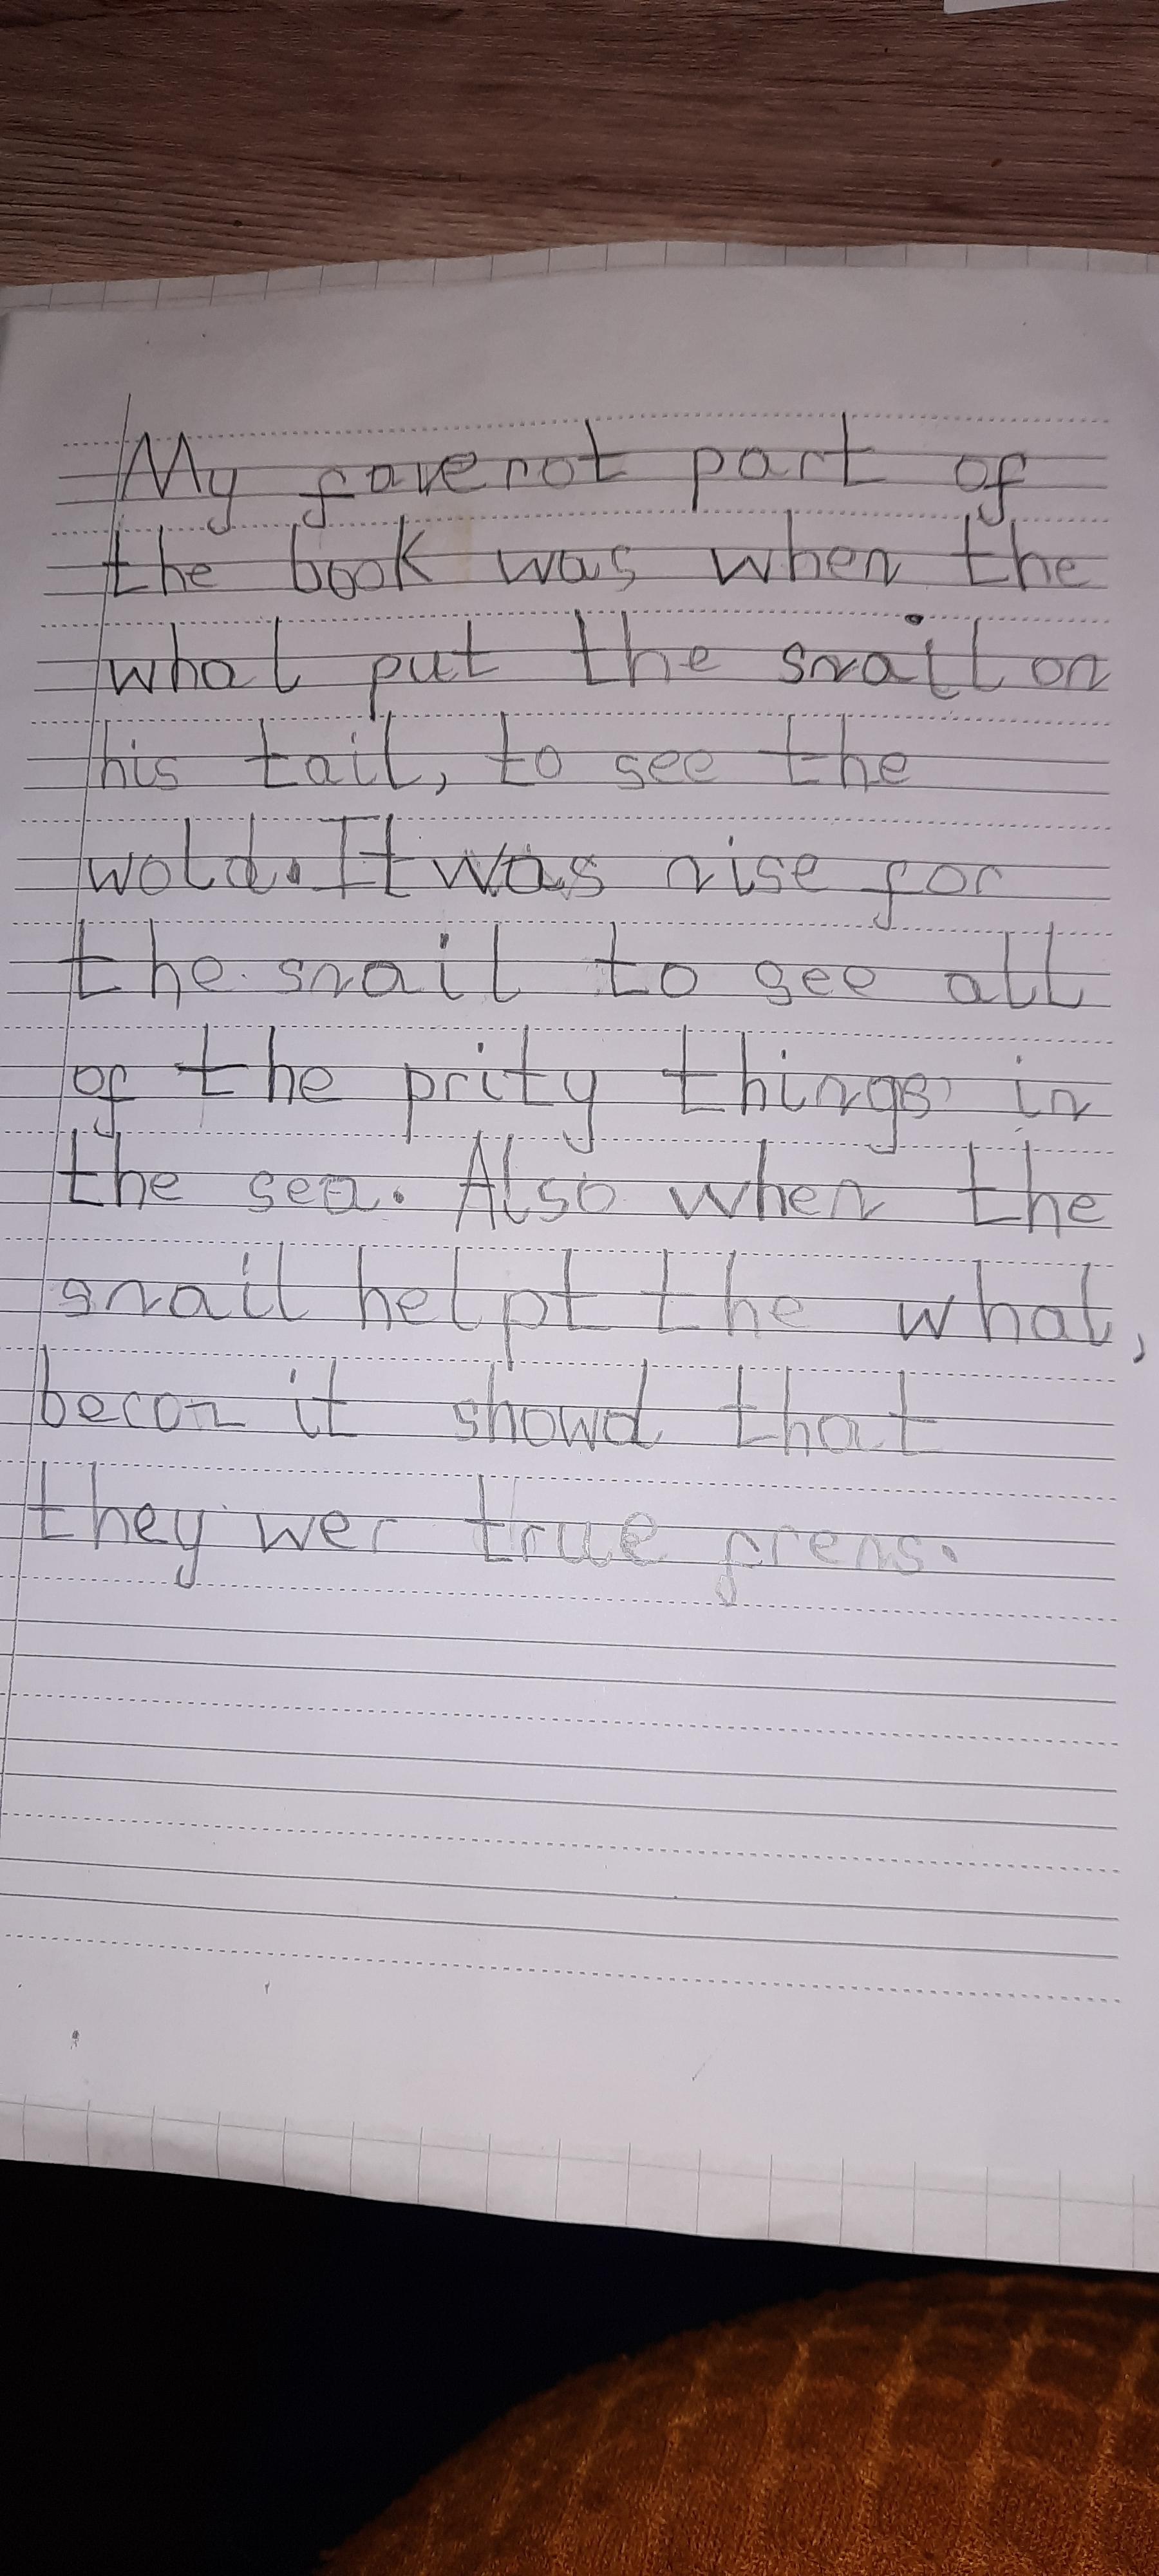 My faverot part of
the book was when the
whal put the snail on
his tail, to see the
wold. It was nise for
the snail to see all
of the prity things in
the sea. Also when the
snail helpt the whal,
becon it showd that
they wer true frens.